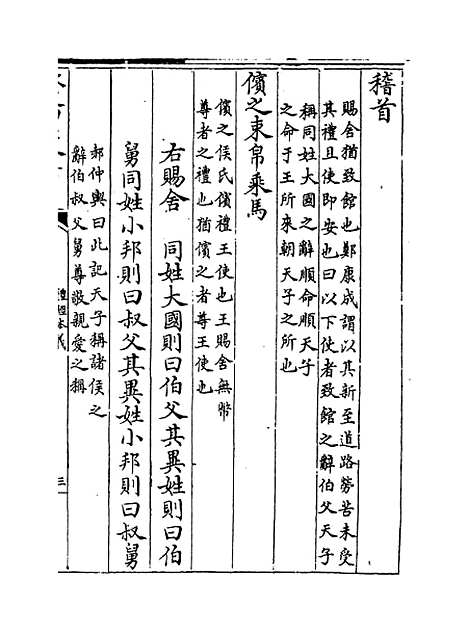 稽首
賜舍猶致館也鄭康成謂以其新至道路勞苦未受
其禮且使即安也曰以下使者致館之辭伯父天子
稱同姓大國之辭順命順天子
之命于王所來朝天子之所也
儐之束帛乘馬
儐之侯氏儐禮王使也王賜舍無幣
尊者之禮也猶儐之者尊王使也
右賜舍　同姓大國則曰伯父其異姓則曰伯
舅同姓小邦則曰叔父其異姓小邦則曰叔舅
郝仲輿曰此記天子稱諸侯之
辭伯叔父舅尊敬親愛之稱
禮經本義
三